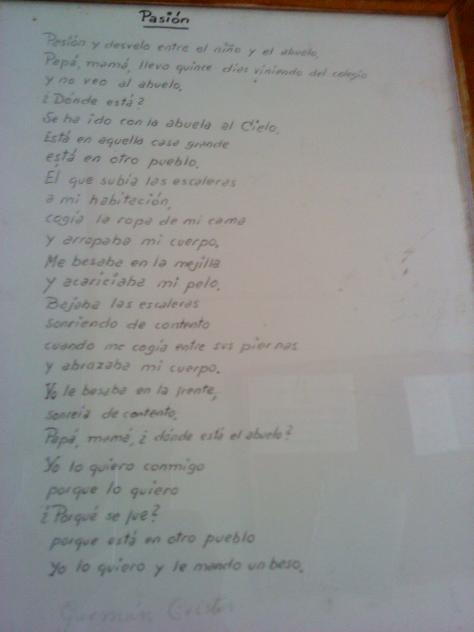 Pasión
Pasión y desvelo entre el niño y el abuelo.
Papá, mamá, llevo quince días viniendo del colegio
y no veo al abuelo.
¿Dónde está?
Se ha ido con la abuela al Cielo.
Está en aquella casa grande
está en otro pueblo.
El que subía las escaleras
a mi habitación,
cogía la ropa de mi cama
y arropaba mi cuerpo.
Me besaba en la mejilla
y acariciaba mi pelo.
Bajaba las escaleras
sonriendo de contento
cuando me cogía entre sus piernas
y abrazaba mi cuerpo.
Yo le besaba en la frente,
sonreía de contento.
Papá, mamá, ¿dónde está el abuelo?
Yo lo quiero conmigo
porque lo quiero
¿Porqué se fue?
porque está en otro pueblo
Yo lo quiero y le mando un beso.